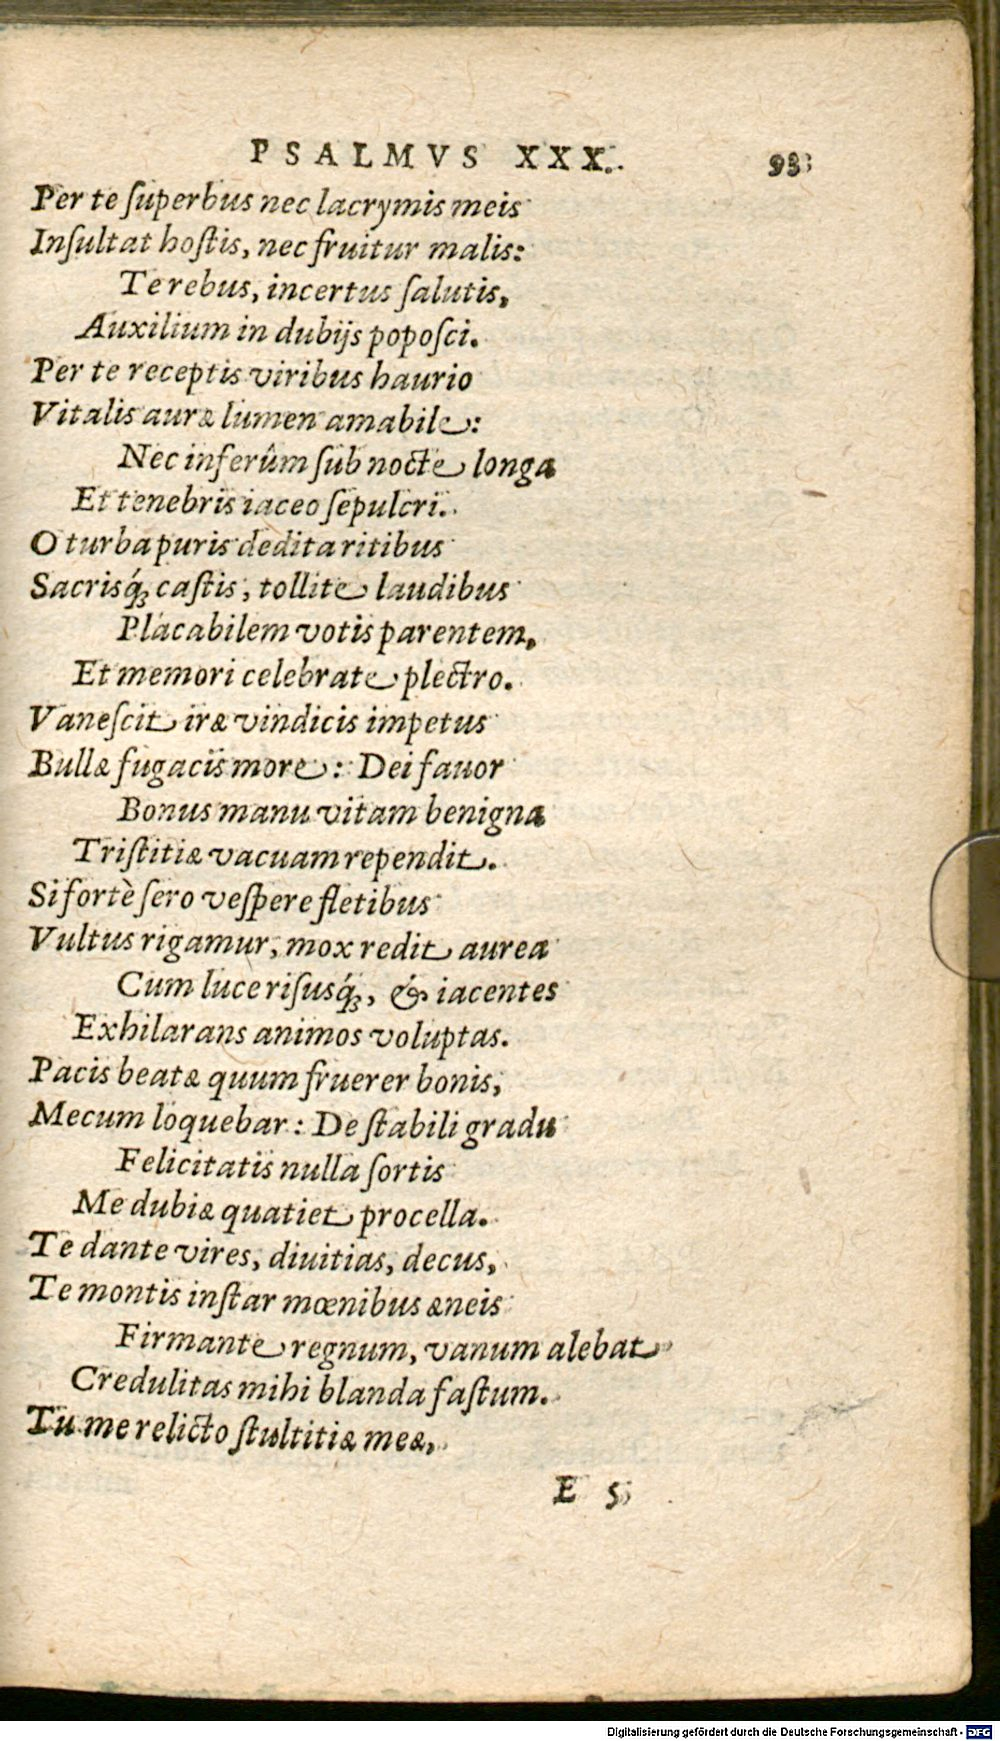 PSALMVS XXX. 93
Per te ſuperbus nec lacrymis meis
Inſultat hoſtis, nec fruitur malis:
Te rebus, incertus ſalutis,
Auxilium in dubijs popoſci.
Per te receptis viribus haurio
Vitalis auræ lumen amabile:
Nec inferûm ſub nocte longa
Et tenebris iaceo ſepulcri.
O turba puris dedita ritibus
Sacrisq́; caſtis, tollite laudibus
Placabilem votis parentem,
Et memori celebrate plectro.
Vaneſcit iræ vindicis impetus
Bullæ fugacis more: Dei fauor
Bonus manu vitam benigna
Triſtitiæ vacuam rependit.
Si fortè ſero veſpere fletibus
Vultus rigamur, mox redit aurea
Cum luce riſusq́;, & iacentes
Exhilarans animos voluptas.
Pacis beatæ quum fruerer bonis,
Mecum loquebar: De ſtabili gradu
Felicitatis nulla ſortis
Me dubiæ quatiet procella.
Te dante vires, diuitias, decus,
Te montis inſtar mœnibus æneis
Firmante regnum, vanum alebat
Credulitas mihi blanda faſtum.
Tu me relicto ſtultitiæ meæ,
E 5
Digitalisierung gefördert durch die Deutsche Forschungsgemeinschaft - DFG